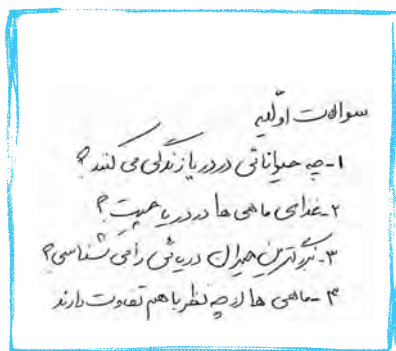 سوالات اولیه
۱-چه حیواناتی در دریا زندگی می کنند؟
۲-غذای ماهی ها در دریا چیست؟
۳-بزرگترین حیوان دریائی را می شناسی؟
۴-ماهی ها از چه نظر با هم تفاوت دارند